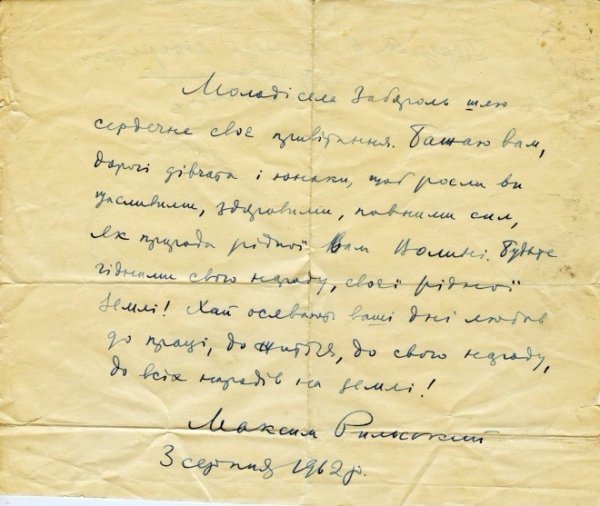 Молоді села Забороль шлю
сердечне своє привітання. Бажаю вам,
дорогі дівчата і юнаки, щоб росли ви
щасливими, здоровими, повними сил,
як природа рідної вам Волині. Будьте
гідними свого народу, своєї рідної
землі! Хай осявають ваші дні любов
до праці, до життя, до свого народу,
до всіх народів на землі!
Максим Рильський
3 серпня 1962 р.